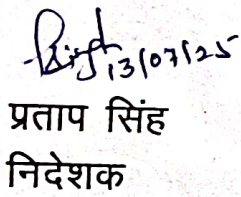 13/07/25
प्रताप सिंह
निदेशक